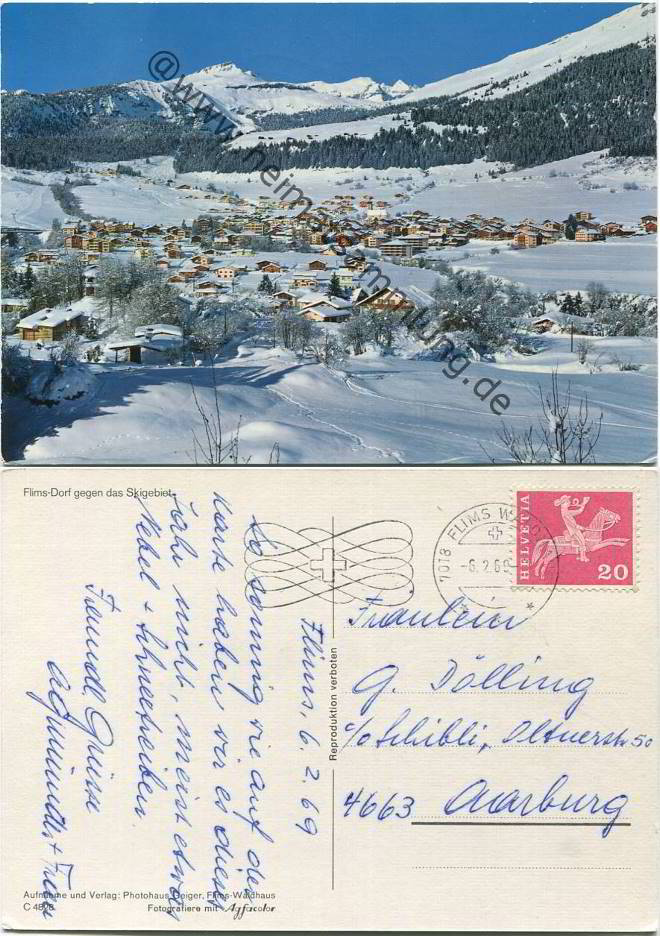 @www.heimatsammlung.de
Flims-Dorf gegen das Skigebiet
7018 FLIMS WALDHAUS
-6.2.69
HELVETIA
20
Flims, 6.2.69
So sonnig wie auf der
Karte haben wir es dieses
Jahr nicht, meist etwas
Nebel + Schneetreiben.
Freundl. Grüsse
Fräulein
G. Dölling
c/o Schibli, Oltnerstr. 50
4663 Aarburg
Reproduktion verboten
Aufnahme und Verlag: Photohaus Geiger, Flims-Waldhaus
Fotografiere mit Agfacolor